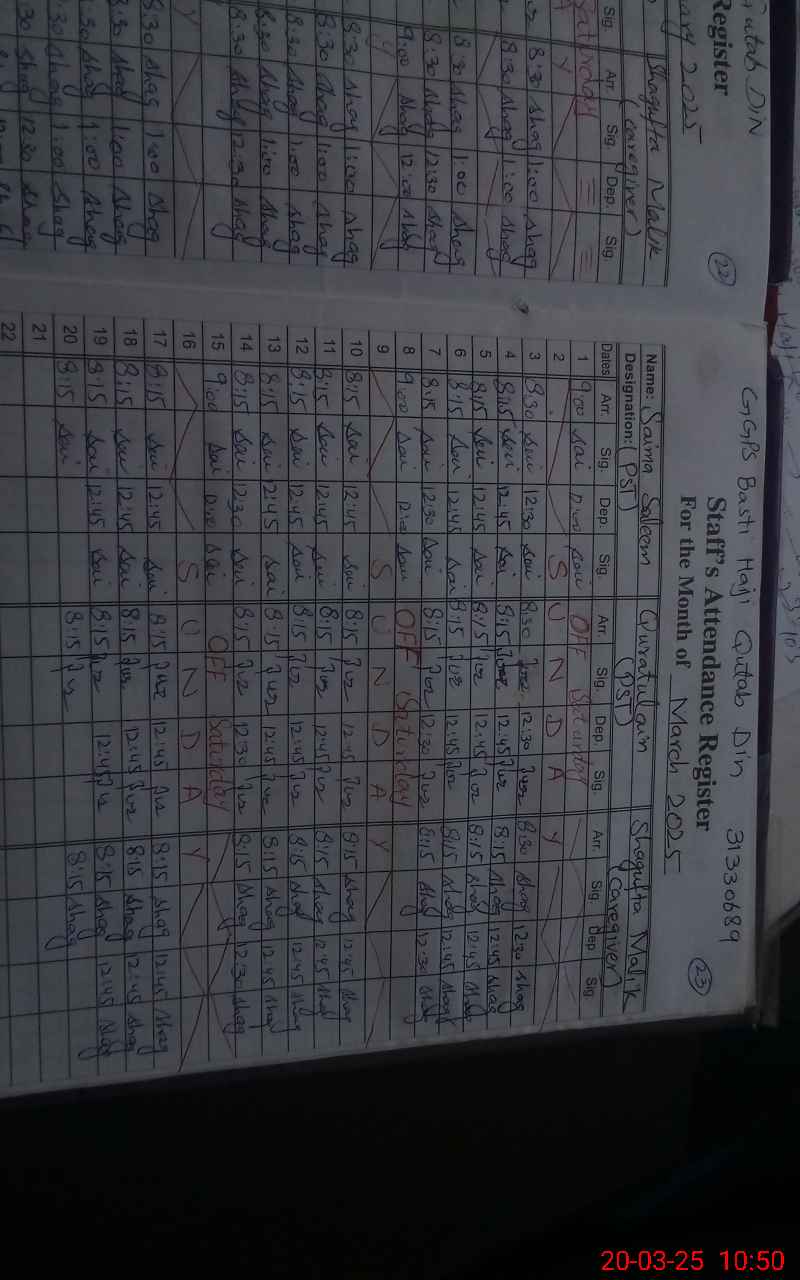 Qutab Din
Register
2025
Shagufta Malik
(caregiver)
Sig. Arr. Sig. Dep. Sig.
Saturday
Y
8:30 Shag 1:00 Shag
8:30 Shag 1:00 Shag
8:30 Shag 1:00 Shag
8:30 Shag 12:30 Shag
9:00 Shag 12:00 Shag
Y
8:30 Shag 1:00 Shag
8:30 Shag 1:00 Shag
8:30 Shag 1:00 Shag
8:30 Shag 1:00 Shag
8:30 Shag 12:30 Shag
Y
8:30 Shag 1:00 Shag
8:30 Shag 1:00 Shag
30 Shag 1:00 Shag
30 Shag 1:00 Shag
30 Shag 12:30 Shag
(22)
GGPS Basti Haji Qutab Din 31330689
(23)
Staff's Attendance Register
For the Month of March 2025
Name: Saima Saleem Quratulain Shagufta Malik
Designation: (PST) (PST) (caregiver)
Dates Arr. Sig. Dep. Sig. Arr. Sig. Dep. Sig. Arr. Sig. dep Sig.
1 9:00 Sai 12:00 Sai OFF Saturday
2 S U N D A Y
3 8:30 Sai 12:30 Sai 8:30 12:30 8:30 Shag 12:30 Shag
4 8:15 Sai 12:45 Sai 8:15 12:45 8:15 Shag 12:45 Shag
5 8:15 Sai 12:45 Sai 8:15 12:45 8:15 Shag 12:45 Shag
6 8:15 Sai 12:45 Sai 8:15 12:45 8:15 Shag 12:45 Shag
7 8:15 Sai 12:30 Sai 8:15 12:30 8:15 Shag 12:30 Shag
8 9:00 Sai 12:00 Sai OFF Saturday
9 S U N D A Y
10 8:15 Sai 12:45 Sai 8:15 12:45 8:15 Shag 12:45 Shag
11 8:15 Sai 12:45 Sai 8:15 12:45 8:15 Shag 12:45 Shag
12 8:15 Sai 12:45 Sai 8:15 12:45 8:15 Shag 12:45 Shag
13 8:15 Sai 12:45 Sai 8:15 12:45 8:15 Shag 12:45 Shag
14 8:15 Sai 12:30 Sai 8:15 12:30 8:15 Shag 12:30 Shag
15 9:00 Sai 12:00 Sai OFF Saturday
16 S U N D A Y
17 8:15 Sai 12:45 Sai 8:15 12:45 8:15 Shag 12:45 Shag
18 8:15 Sai 12:45 Sai 8:15 12:45 8:15 Shag 12:45 Shag
19 8:15 Sai 12:45 Sai 8:15 12:45 8:15 Shag 12:45 Shag
20 8:15 Sai 8:15 8:15 Shag
21
22
20-03-25 10:50